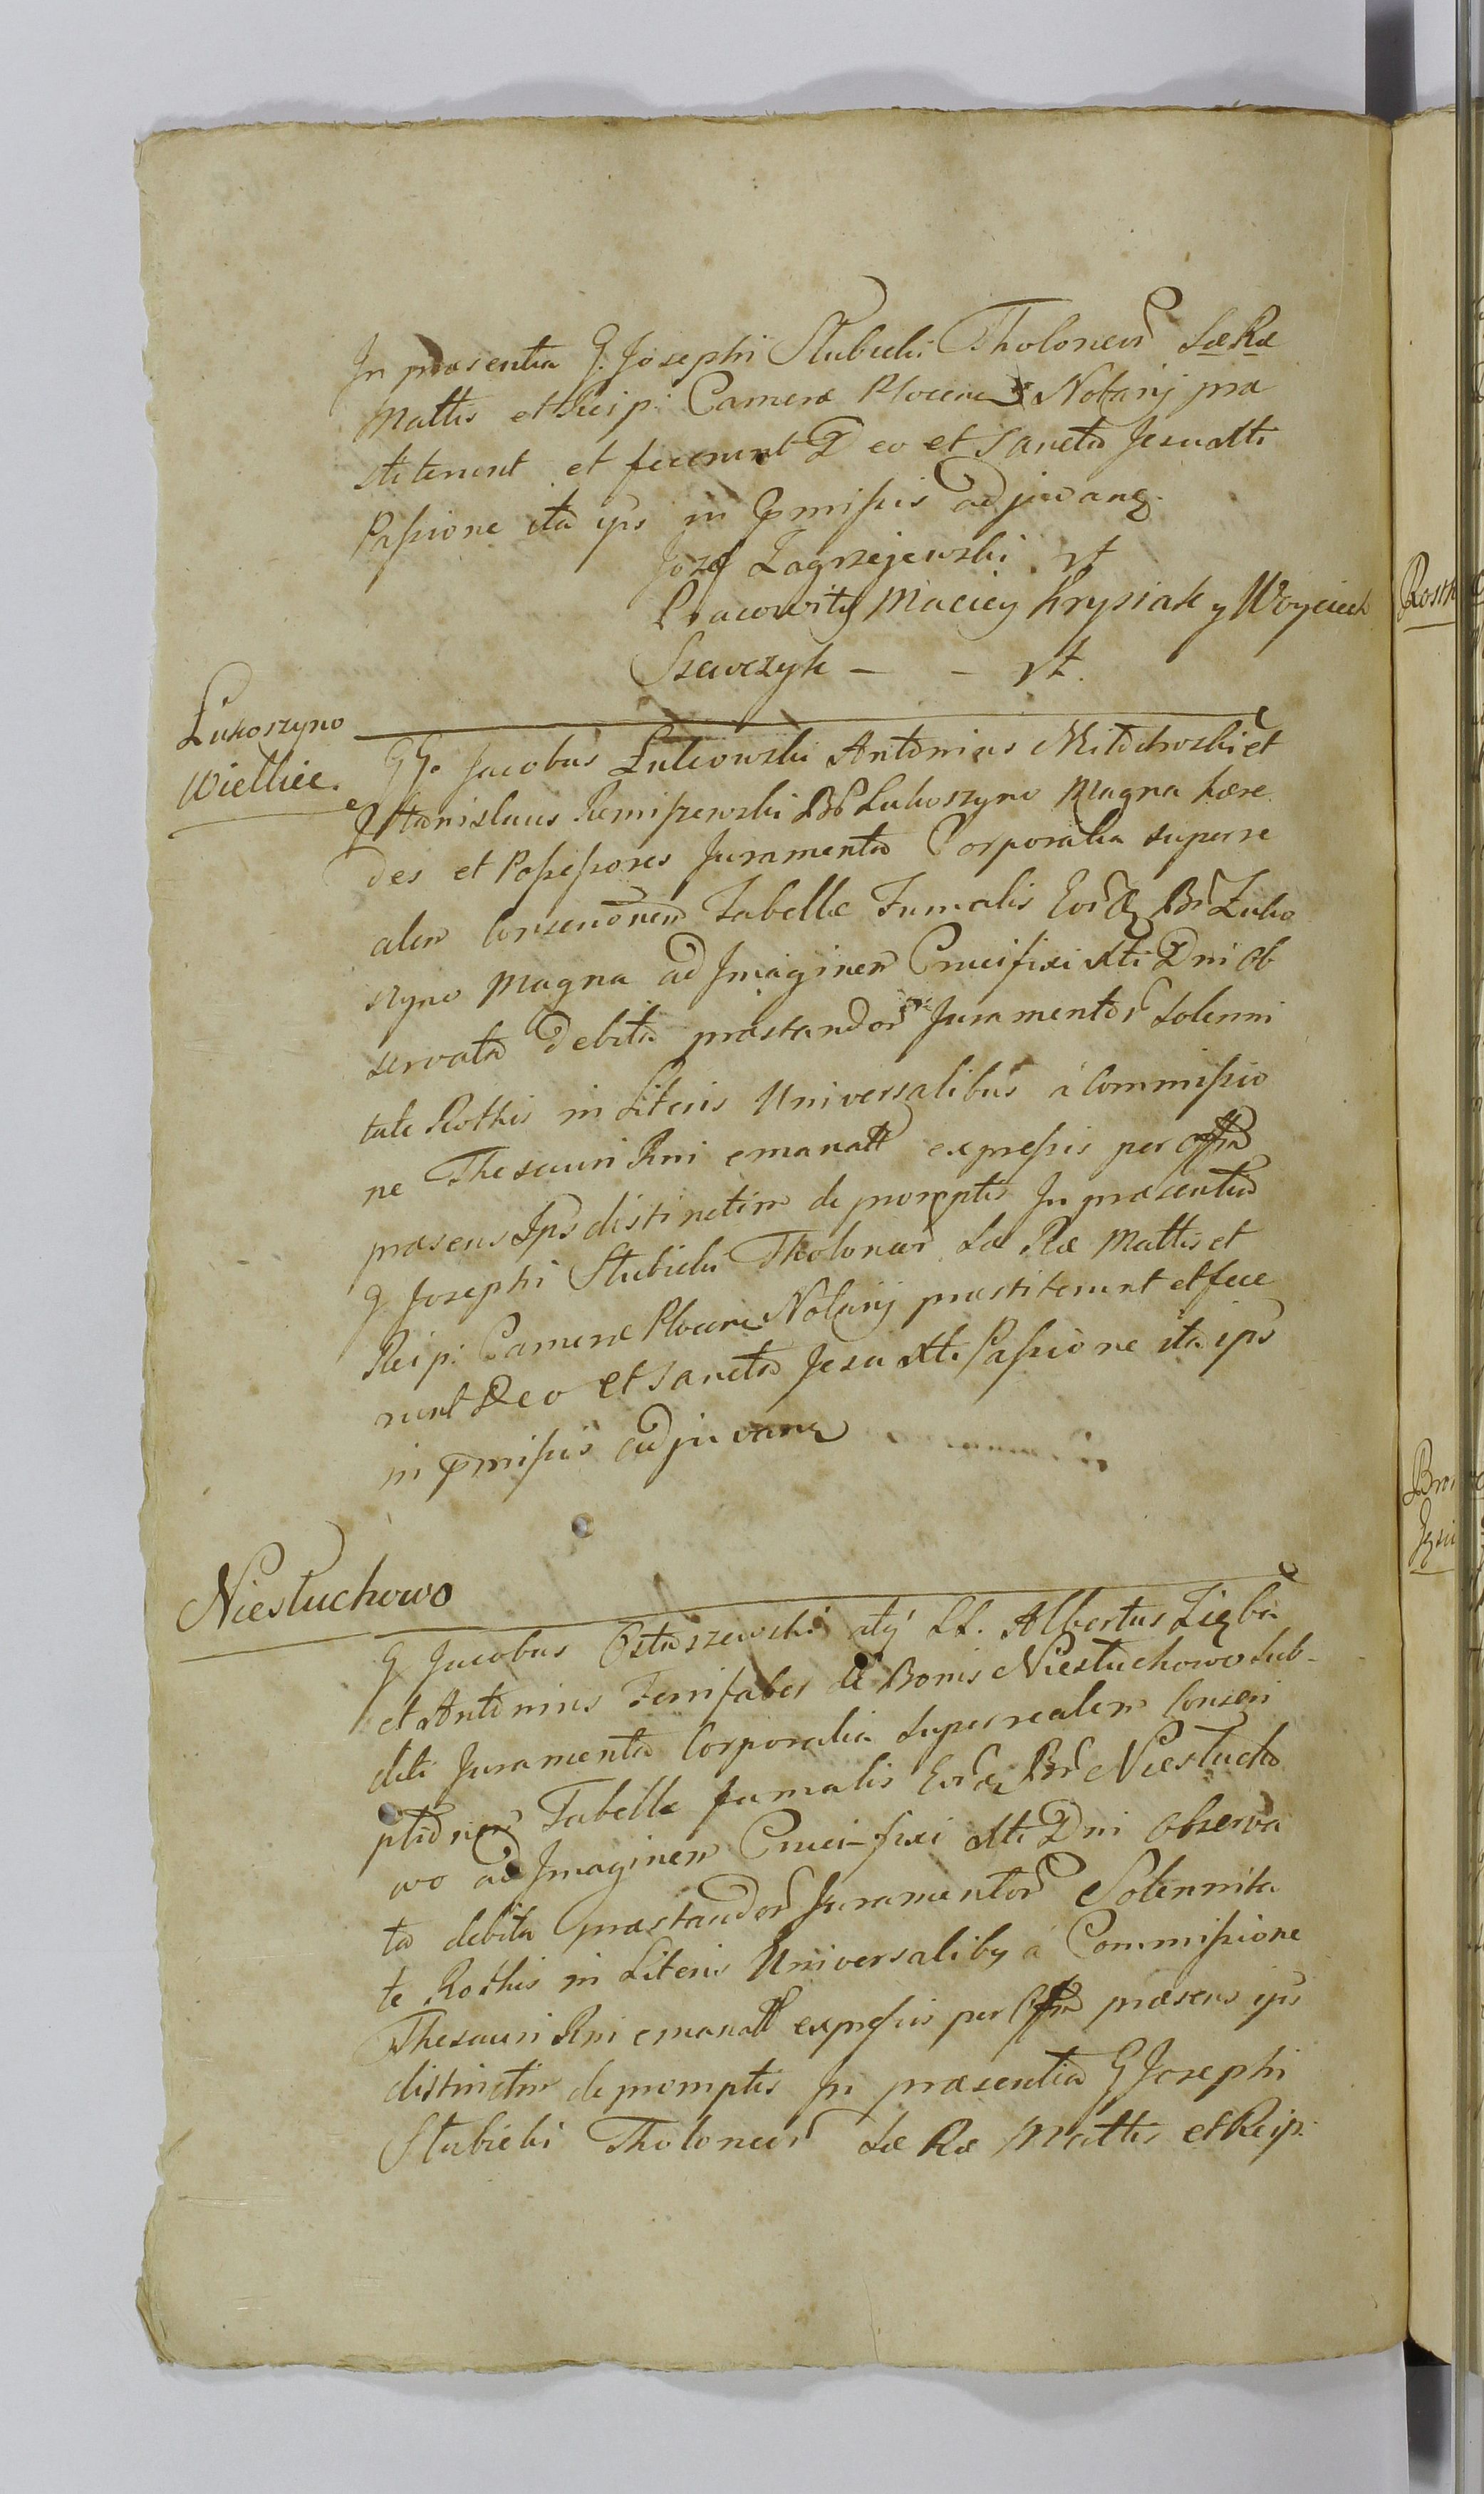 In praesentia G. Josephi Stubicki Tholoneor Sae Rae
Mattis et Reip: Camerae Plocen Notarij prae
stiterunt et fecerunt Deo et Sancta Jesu Xti
Passione ita ips in pmissis adjuvanq.
Jozef Zagrzejewski vt
Pracowity Maciey Krysiak y Woyciech
Szewczyk - - vt.
Lukoszyno
Wielkie.
GG. Jacobus Lukowski Antonius et
Stanislaus Remiszewski BB Lukoszyno Magna haere
des et Possessores Juramenta Corporalia super re
alem Tabellae Fumalis Eordq Br Luko
szyno Magna ad Imaginem Crucifixi Xti Dni Ob
servata debita praestandor Juramentor Solenni
tate Rothis in Literis Universalibus à Commissio
ne Thesauri Rni emanatt expressis per Offm
praesens Ips distinctim depromptis In praesentia
G. Josephi Stubicki Tholoneor Sae Rae Mattis et
Reip: Camerae Plocen Notarij praestiterunt et fece
runt Deo et Sancta Jesu Xti Passione ita ips
in pmissis adjuvanq
Niestuchowo
G Jacobus Ostaszewski atq LL. Albertus Zięba
et Antonius Ferrifaber de Bonis Niestuchowo Sub-
diti Juramenta Corporalia super realem Conscri
ptionem Tabellae fumalis Eordq Br Niestucho
wo ad Imaginem Crucifixi Xti Dni Observa
ta debita praestandor Juramentor Solennita
te Rothis in Literis Universaliby à Commissione
Thesauri Rni emanatt expressis per Offm praesens ips
distinctim depromptis In praesentia G Josephi
Stubicki Tholoneor Sae Rae Mattis et Reip: